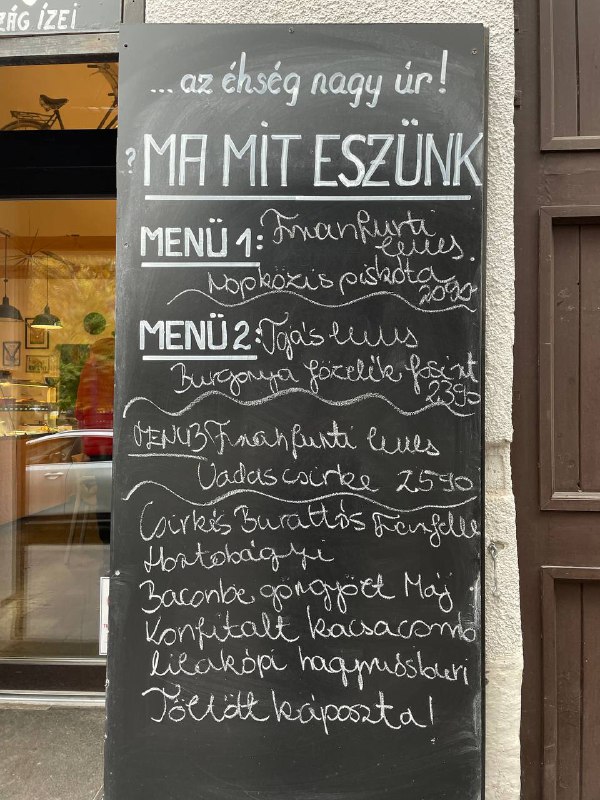 ZÁG ÍZEI
... az éhség nagy úr!
? MA MIT ESZÜNK
MENÜ 1: Frankfurti
leves.
Napközis piskóta
2090
MENÜ 2: Tojásleves
Burgonya főzelék fasírt
2390
MENÜ3 Frankfurti leves
Vadas csirke 2590
Csirkés
Hortobágyi
Baconbe göngyölt Máj
Konfitált kacsacomb
lilaképi hagymás
Töltött káposzta!